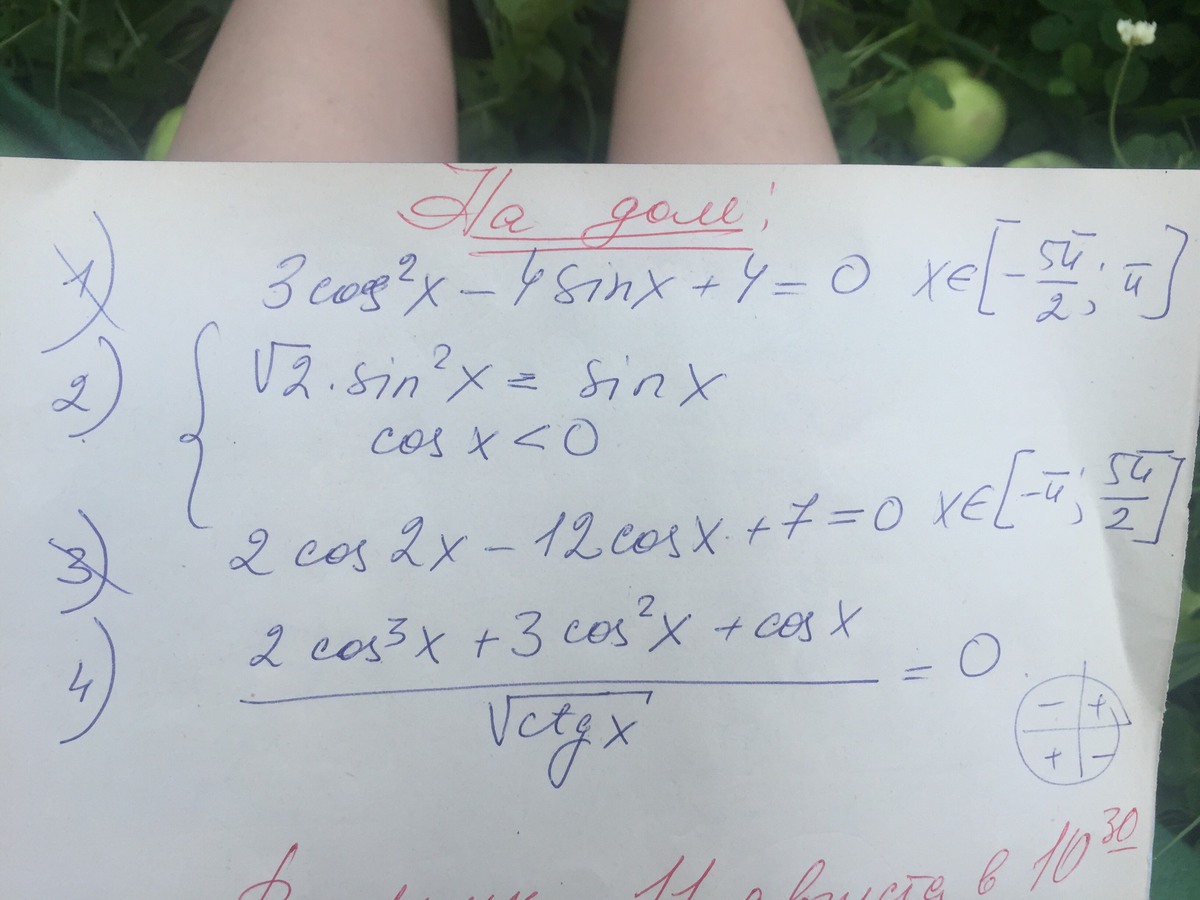 На дом:
1) 3cos²x − 4sinx + 4 = 0 x∈[−5π/2; π]
2) { √2·sin²x = sinx
cos x < 0
3) 2 cos2x − 12cosx + 7 = 0 x∈[−π; 5π/2]
4) (2 cos³x + 3cos²x + cosx)/√ctgx = 0
− +
+ −
11 августа в 10³⁰